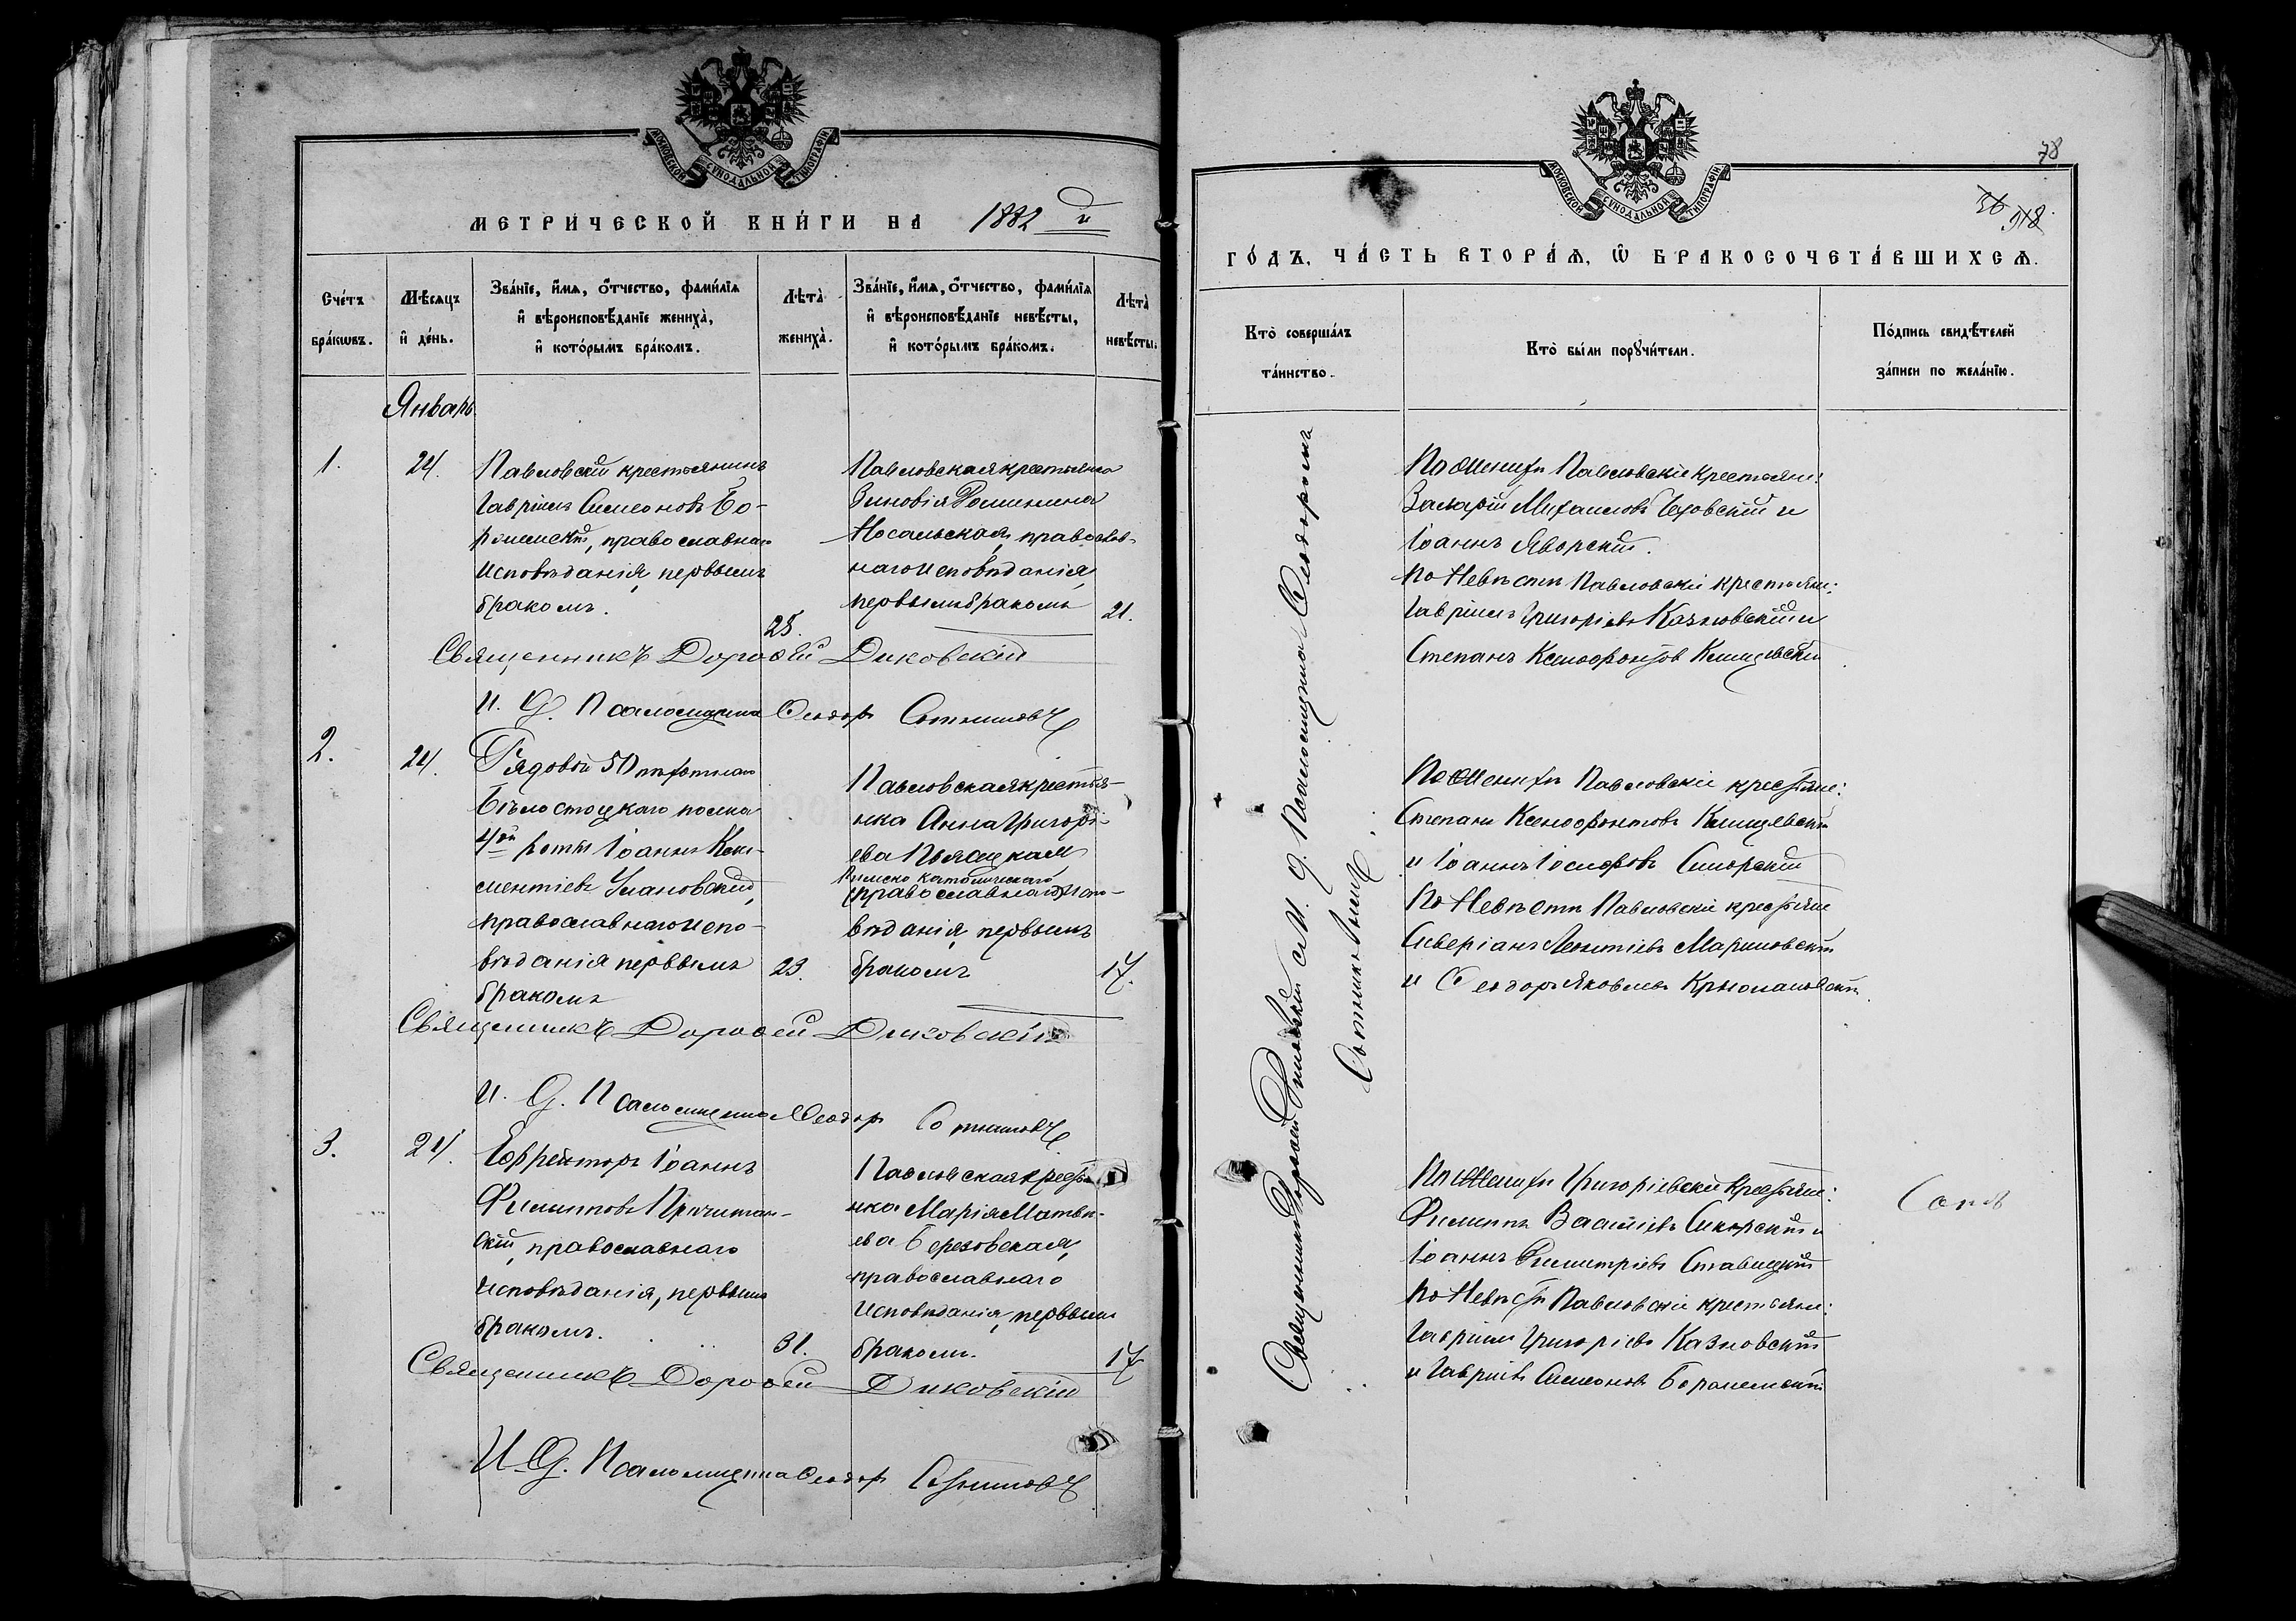 МОСКОВСКОЙ СУНОДАЛЬНОЙ ТИПОГРАФІИ
МЕТРИЧЕСКОЙ КНИГИ НА 1882 й
Счетъ браковъ.
Мѣсяцъ и день.
Званіе, имя, отчество, фамилія и вѣроисповѣданіе жениха, и которымъ бракомъ.
Лѣта жениха.
Званіе, имя, отчество, фамилія и вѣроисповѣданіе невѣсты, и которымъ бракомъ.
Лѣта невѣсты.
Январь
1.
24.
Павловскій крестьянинъ
Гавріилъ Симеоновъ Бо-
ремскій, православнаго
исповѣданія, первымъ
бракомъ.
25.
Павловская крестьянка
Зиновія
Носальская, православ-
наго исповѣданія,
первымъ бракомъ
21.
Священникъ Дорофей Диковскій
И. д. Псаломщика Феодоръ
2.
24.
Рядовой 50 пѣхотнаго
Бѣлостоцкаго полка
4ой роты Іоаннъ Кли-
ментіевъ Улановскій,
православнаго испо-
вѣданія первымъ
бракомъ
23.
Павловская крестья-
нка Анна Григорі-
ева
Римско католическаго
(православнаго) испо-
вѣданія, первымъ
бракомъ
17.
Священникъ Дорофей Диковскій
И. д. Псаломщика Феодоръ
3.
24.
Ефрейторъ Іоаннъ
Филипповъ
скій, православнаго
исповѣданія, первымъ
бракомъ.
31.
Павловская крестья-
нка Марія Матвѣ-
ева Березовская,
православнаго
исповѣданія, первымъ
бракомъ.
17
Священникъ Дорофей Диковскій
И. д. Псаломщика Феодоръ
МОСКОВСКОЙ СУНОДАЛЬНОЙ ТИПОГРАФІИ
78
ГОДЪ, ЧАСТЬ ВТОРАЯ, Ѿ БРАКОСОЧЕТАВШИХСЯ.
Кто совершалъ таинство.
Кто были поручители.
Подпись свидѣтелей записи по желанію.
Священникъ Дорофей Диковскій съ И. д. Псаломщика Феодоромъ
По Женихѣ Павловскіе крестьяне:
Захарій Михаиловъ и
Іоаннъ Яворскій.
По Невѣстѣ Павловскіе крестьяне:
Гавріилъ Григоріевъ Казновскій и
Степанъ Ксенофонтовъ Клищевскій
По Женихѣ Павловскіе крестьяне:
Степанъ Ксенофонтовъ Клищевскій
и Іоаннъ Іосифовъ Сикорскій
По Невѣстѣ Павловскіе крестьяне
Северіанъ Леонтіевъ
и Феодоръ Яковлевъ
По Женихѣ Григоріевскіе крестьяне:
Филиппъ Василіевъ Сикорскій и
Іоаннъ Димитріевъ Ставицкій
По Невѣстѣ Павловскіе крестьяне:
Гавріилъ Григоріевъ Казновскій
и Гавріилъ Симеоновъ Боремскій